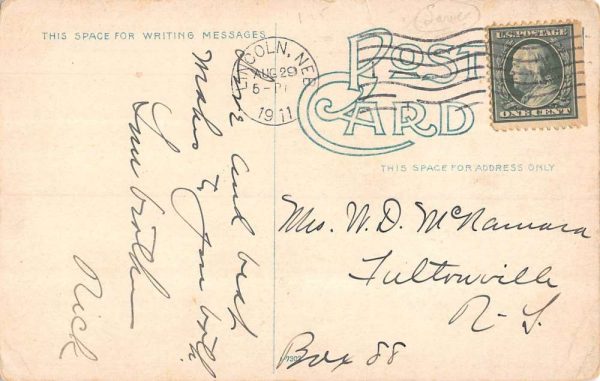 THIS SPACE FOR WRITING MESSAGES
Love and best
wishes to you both
Your brother
Nick
LINCOLN, NEB
AUG 29
6-PM
1911
POST CARD
THIS SPACE FOR ADDRESS ONLY
U.S. POSTAGE
ONE CENT
Mrs. W. D. McNamara
Fultonville
N. Y.
Box 88
7302